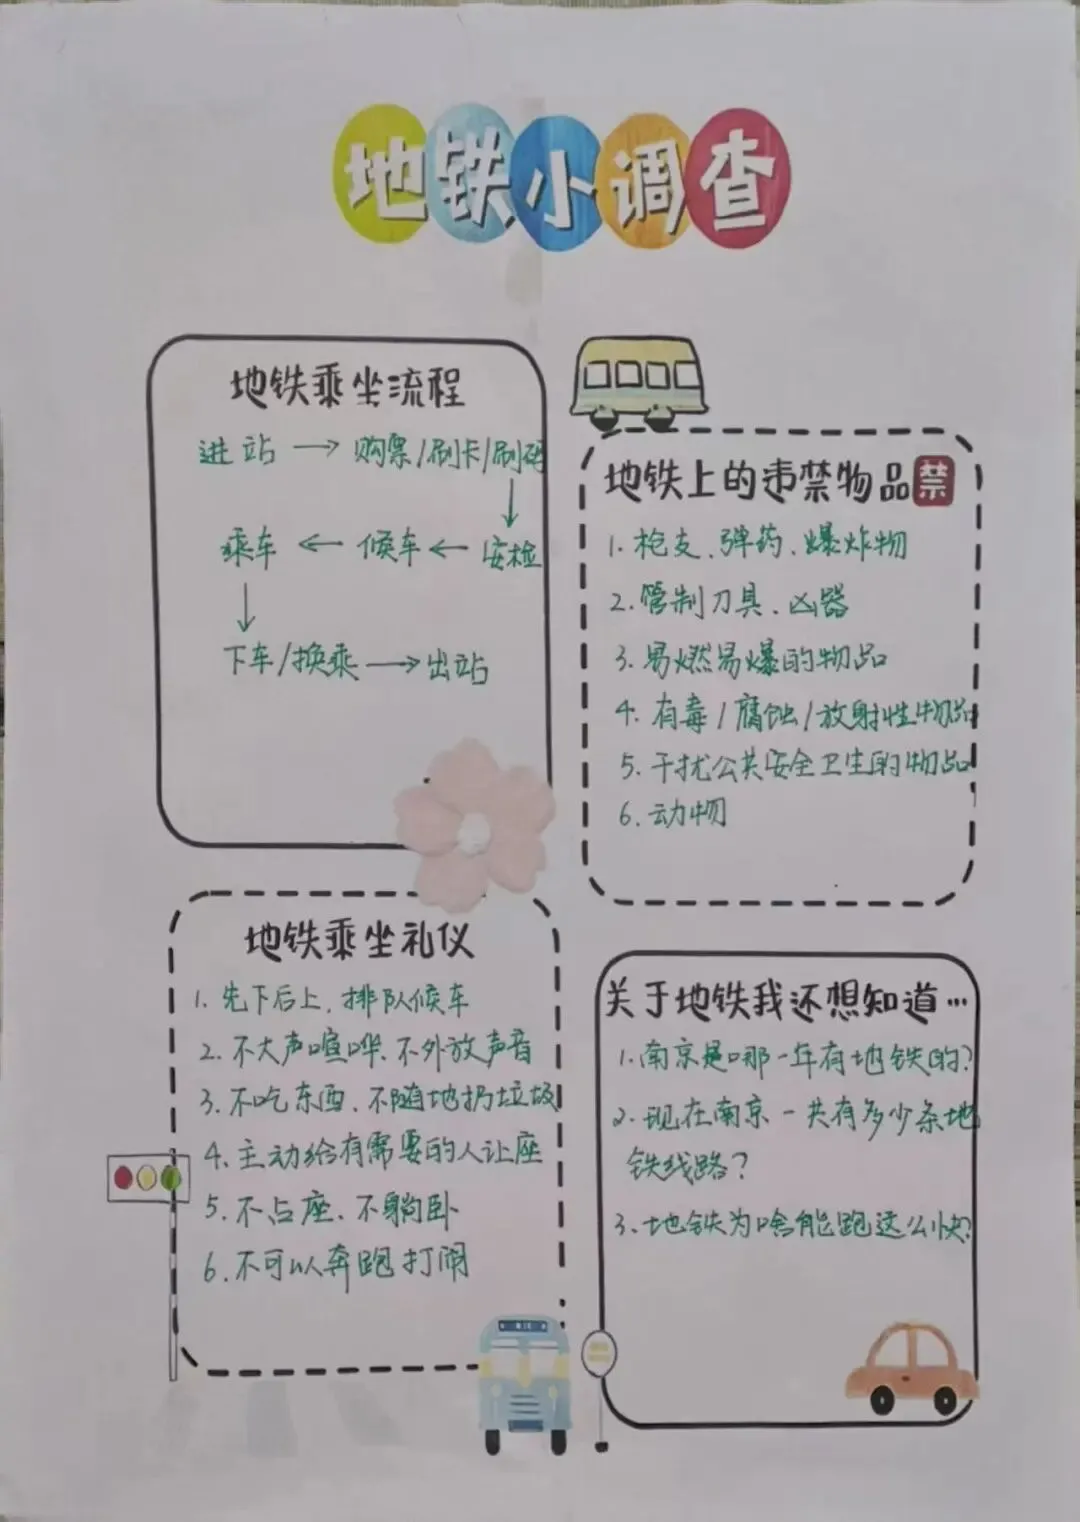 地铁小调查
地铁乘坐流程
进站→购票/刷卡/刷码
乘车←候车←安检
下车/换乘→出站
地铁上的违禁物品禁
1.枪支、弹药、爆炸物
2.管制刀具、凶器
3.易燃易爆的物品
4.有毒/腐蚀/放射性物品
5.干扰公共安全卫生的物品
6.动物
地铁乘坐礼仪
1.先下后上,排队候车
2.不大声喧哗、不外放声音
3.不吃东西、不随地扔垃圾
4.主动给有需要的人让座
5.不占座、不躺卧
6.不可以奔跑打闹
关于地铁我还想知道…
1.南京是哪一年有地铁的?
2.现在南京一共有多少条地
铁线路?
3.地铁为啥能跑这么快?